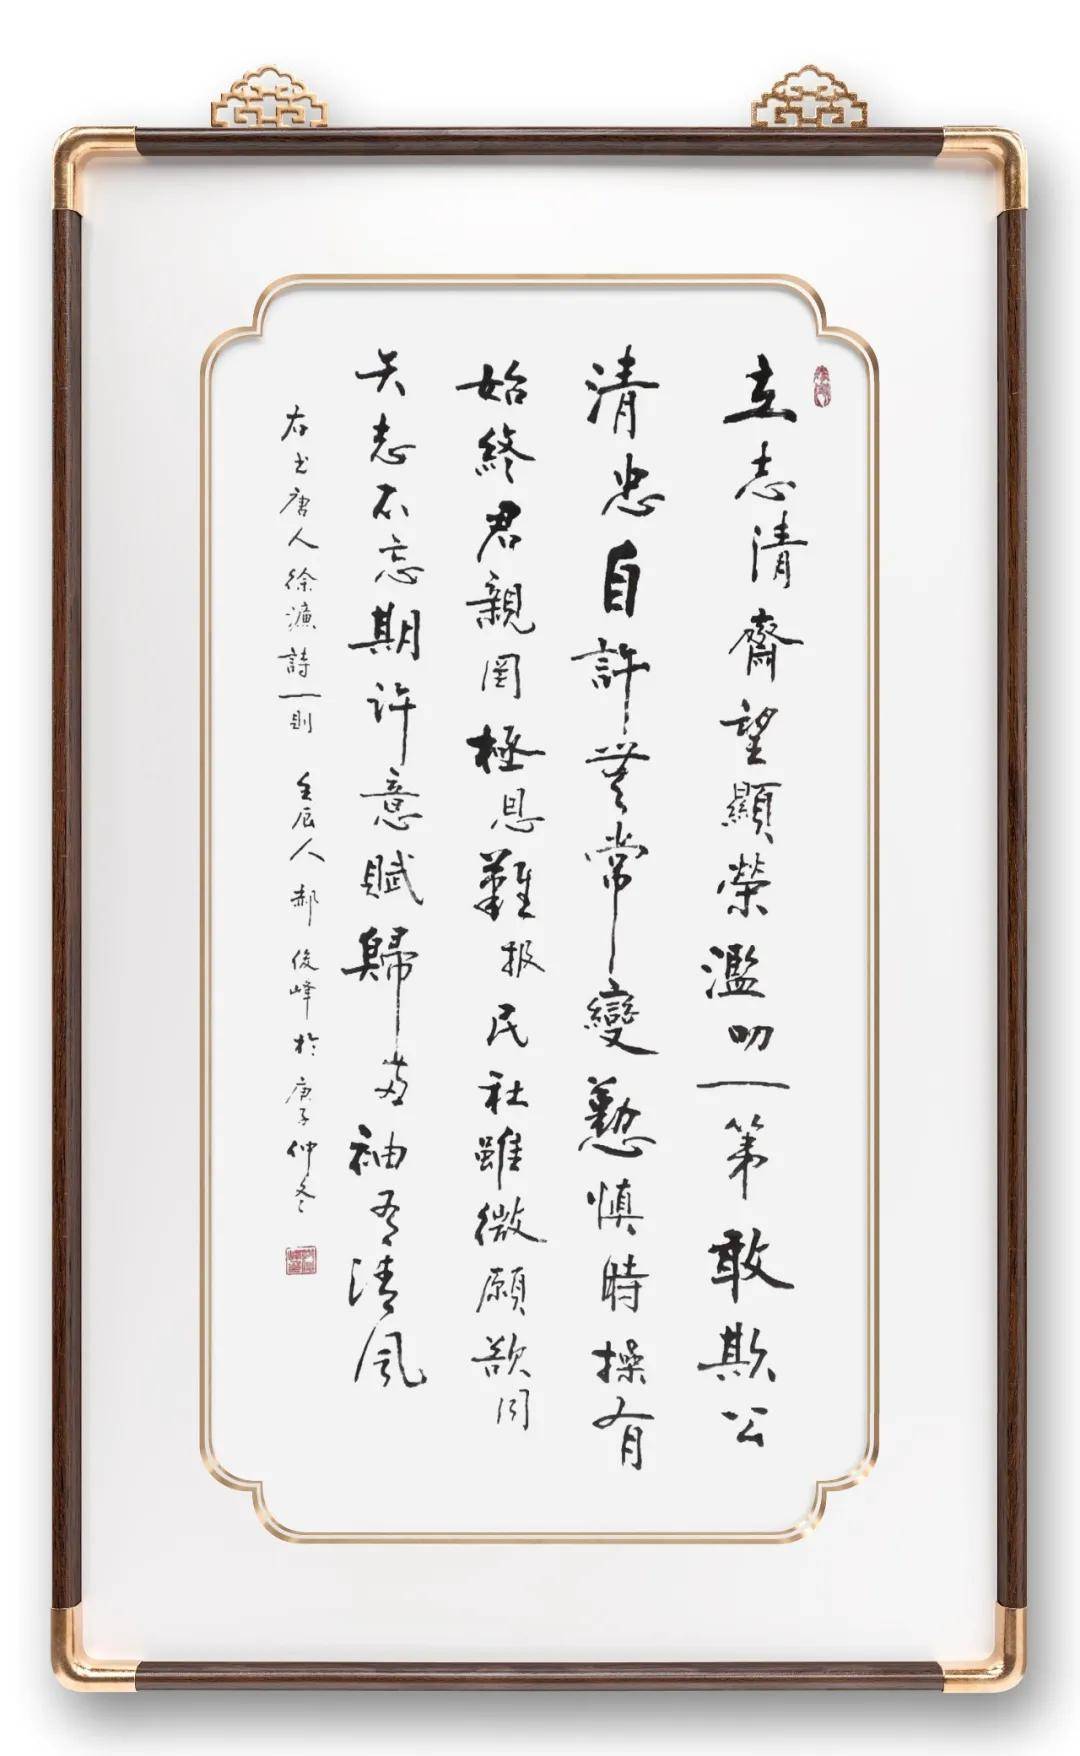 立志清齋望顯榮濫叨一第敢欺公
清忠自許無常變懃慎時操有
始終君親罔極恩難报民社雖微願欲同
矢志不忘期许意賦歸兩袖有清風
右书唐人徐濂詩一則 壬辰人郝俊峰於庚子仲冬